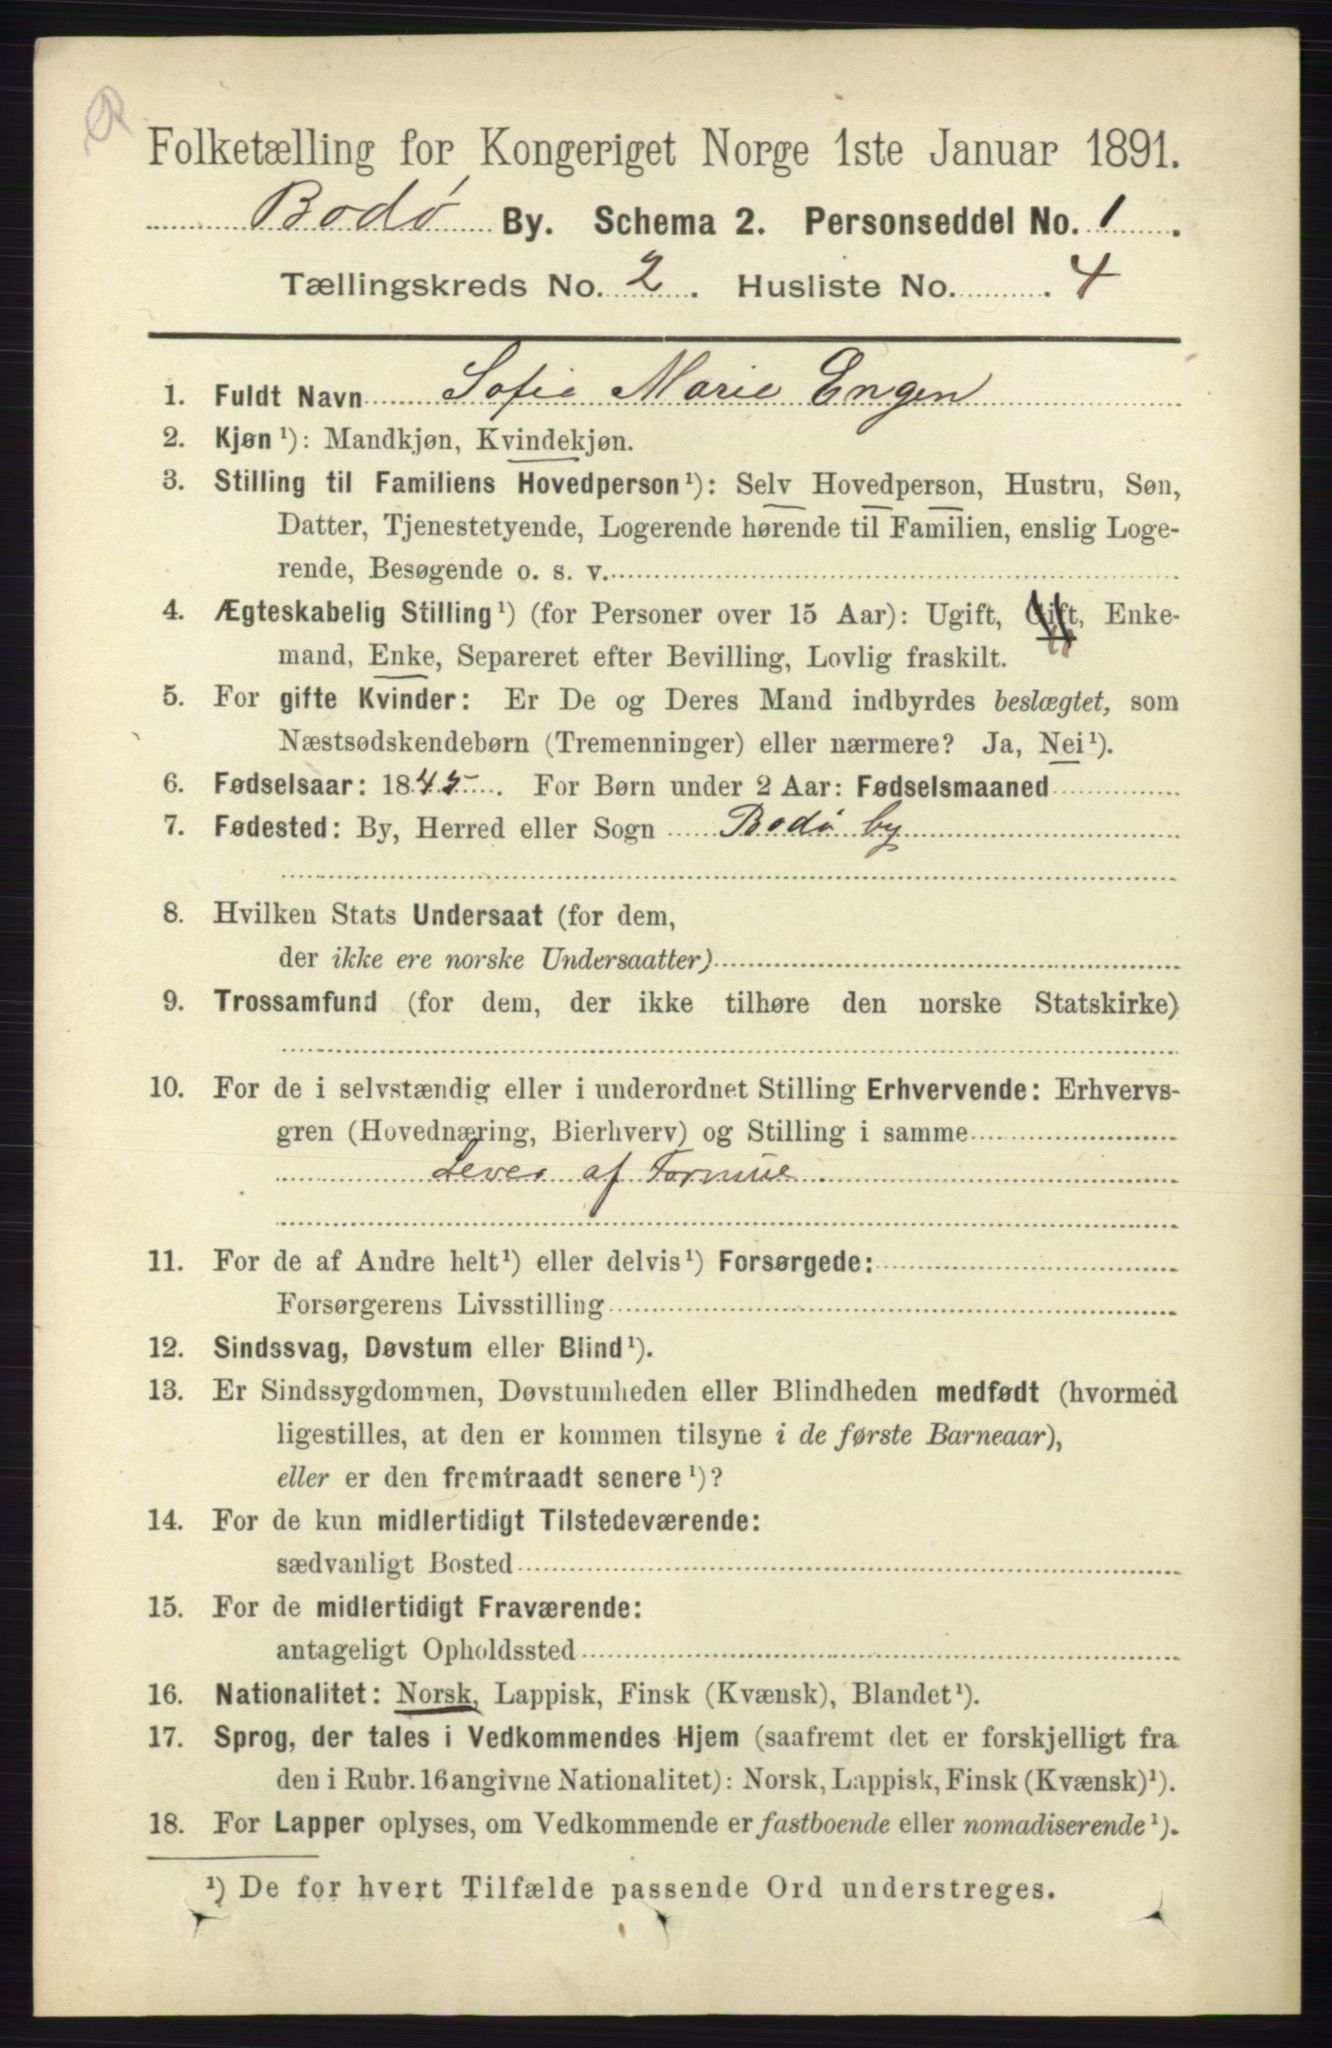 Folketælling for Kongeriget Norge 1ste Januar 1891.
Bodø By. Schema 2. Personseddel No. 1.
Tællingskreds No. 2. Husliste No. 4
1. Fuldt Navn Sofie Marie Engen
2. Kjøn¹): Mandkjøn, Kvindekjøn.
3. Stilling til Familiens Hovedperson¹): Selv Hovedperson, Hustru, Søn,
Datter, Tjenestetyende, Logerende hørende til Familien, enslig Loge-
rende, Besøgende o. s. v.
4. Ægteskabelig Stilling¹) (for Personer over 15 Aar): Ugift, Gift, Enke-
mand, Enke, Separeret efter Bevilling, Lovlig fraskilt.
5. For gifte Kvinder: Er De og Deres Mand indbyrdes beslægtet, som
Næstsødskendebørn (Tremenninger) eller nærmere? Ja, Nei¹).
6. Fødselsaar: 1845. For Børn under 2 Aar: Fødselsmaaned
7. Fødested: By, Herred eller Sogn Bodø by
8. Hvilken Stats Undersaat (for dem,
der ikke ere norske Undersaatter)
9. Trossamfund (for dem, der ikke tilhøre den norske Statskirke)
10. For de i selvstændig eller i underordnet Stilling Erhvervende: Erhvervs-
gren (Hovednæring, Bierhverv) og Stilling i samme
Lever af Formue
11. For de af Andre helt¹) eller delvis¹) Forsørgede:
Forsørgerens Livsstilling
12. Sindssvag, Døvstum eller Blind¹).
13. Er Sindssygdommen, Døvstumheden eller Blindheden medfødt (hvormed
ligestilles, at den er kommen tilsyne i de første Barneaar),
eller er den fremtraadt senere¹)?
14. For de kun midlertidigt Tilstedeværende:
sædvanligt Bosted
15. For de midlertidigt Fraværende:
antageligt Opholdssted
16. Nationalitet: Norsk, Lappisk, Finsk (Kvænsk), Blandet¹).
17. Sprog, der tales i Vedkommendes Hjem (saafremt det er forskjelligt fra
den i Rubr. 16 angivne Nationalitet): Norsk, Lappisk, Finsk (Kvænsk)¹).
18. For Lapper oplyses, om Vedkommende er fastboende eller nomadiserende¹).
¹) De for hvert Tilfælde passende Ord understreges.